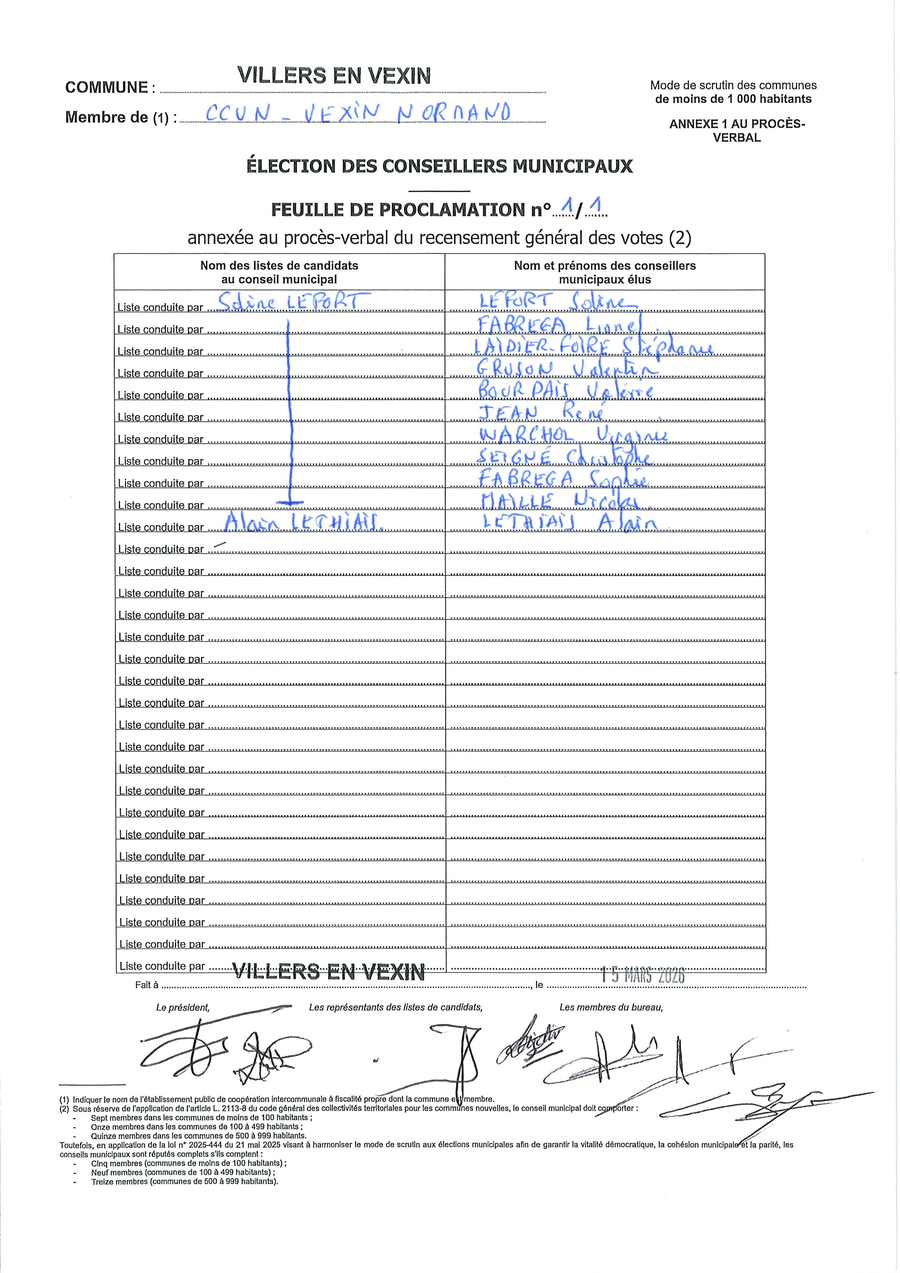 VILLERS EN VEXIN
COMMUNE :
Mode de scrutin des communes
de moins de 1 000 habitants
Membre de (1) : CCVN - VEXIN NORMAND
ANNEXE 1 AU PROCÈS-
VERBAL
ÉLECTION DES CONSEILLERS MUNICIPAUX
FEUILLE DE PROCLAMATION n° 1/1
annexée au procès-verbal du recensement général des votes (2)
Nom des listes de candidats
au conseil municipal
Nom et prénoms des conseillers
municipaux élus
Liste conduite par Soline LEFORT LEFORT Soline
Liste conduite par FABREGA Lionel
Liste conduite par LAIDIER-FOIRE Stéphanie
Liste conduite par GRUSON Valentin
Liste conduite par BOURPAIS Valérie
Liste conduite par JEAN René
Liste conduite par WARCHOL Virginie
Liste conduite par SEIGNÉ Christophe
Liste conduite par FABREGA Sophie
Liste conduite par MAILLE Nicolas
Liste conduite par Alain LETHIAIS. LETHIAIS Alain
Liste conduite par
Liste conduite par
Liste conduite par
Liste conduite par
Liste conduite par
Liste conduite par
Liste conduite par
Liste conduite par
Liste conduite par
Liste conduite par
Liste conduite par
Liste conduite par
Liste conduite par
Liste conduite par
Liste conduite par
Liste conduite par
Liste conduite par
Liste conduite par
Liste conduite par
Liste conduite par
VILLERS EN VEXIN 15 MARS 2026
Fait à , le
Le président, Les représentants des listes de candidats, Les membres du bureau,
(1) Indiquer le nom de l'établissement public de coopération intercommunale à fiscalité propre dont la commune est membre.
(2) Sous réserve de l'application de l'article L. 2113-8 du code général des collectivités territoriales pour les communes nouvelles, le conseil municipal doit comporter :
- Sept membres dans les communes de moins de 100 habitants ;
- Onze membres dans les communes de 100 à 499 habitants ;
- Quinze membres dans les communes de 500 à 999 habitants.
Toutefois, en application de la loi n° 2025-444 du 21 mai 2025 visant à harmoniser le mode de scrutin aux élections municipales afin de garantir la vitalité démocratique, la cohésion municipale et la parité, les
conseils municipaux sont réputés complets s'ils comptent :
- Cinq membres (communes de moins de 100 habitants) ;
- Neuf membres (communes de 100 à 499 habitants) ;
- Treize membres (communes de 500 à 999 habitants).